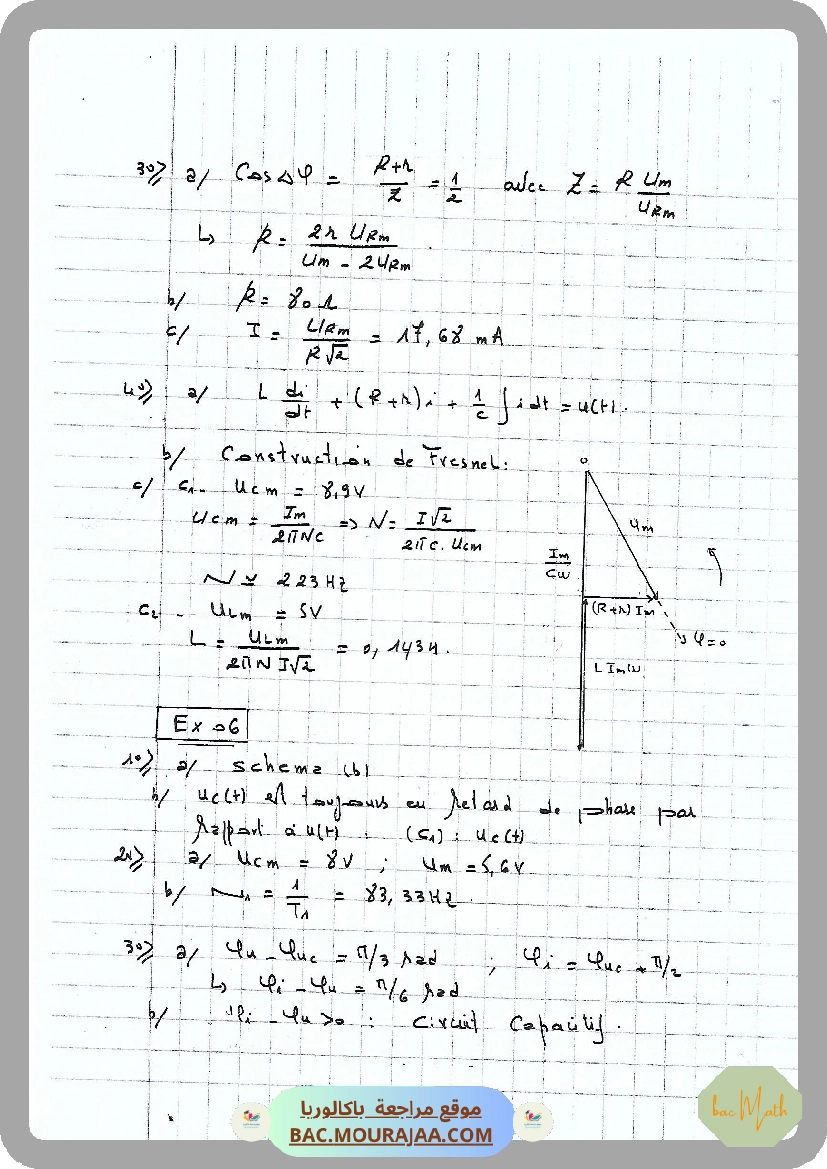 3°/ a/ Cos Δφ = (R+r)/Z = 1/2 avec Z = R Um/URm
↳ R = 2r URm/(Um - 2URm)
b/ R = 80 Ω
c/ I = URm/(R√2) = 17,68 mA
4°/ a/ L di/dt + (R+r)i + 1/c ∫ i dt = u(t).
b/ Construction de Fresnel:
c/ c1- Ucm = 8,9V
Ucm = Im/(2πNc) => N = I√2/(2πc. Ucm)
N ≃ 223 Hz
C2 - ULm = 5V
L = ULm/(2πN I√2) = 0,143H.
O
Um
Im/Cω
(R+r) Im
φ=0
L Imω
Ex 06
1°/ a/ schema (b)
b/ uc(t) est toujours en retard de phase par
rapport à u(t) : (C1) : uc(t)
2°/ a/ Ucm = 8V ; Um = 5,6V
b/ N1 = 1/T1 = 83,33Hz.
3°/ a/ φu - φuc = π/3 rad ; φi = φuc + π/2
↳ φi - φu = π/6 rad
b/ φi - φu >0 : Circuit Capacitif.
موقع مراجعة باكالوريا
BAC.MOURAJAA.COM
bac Math